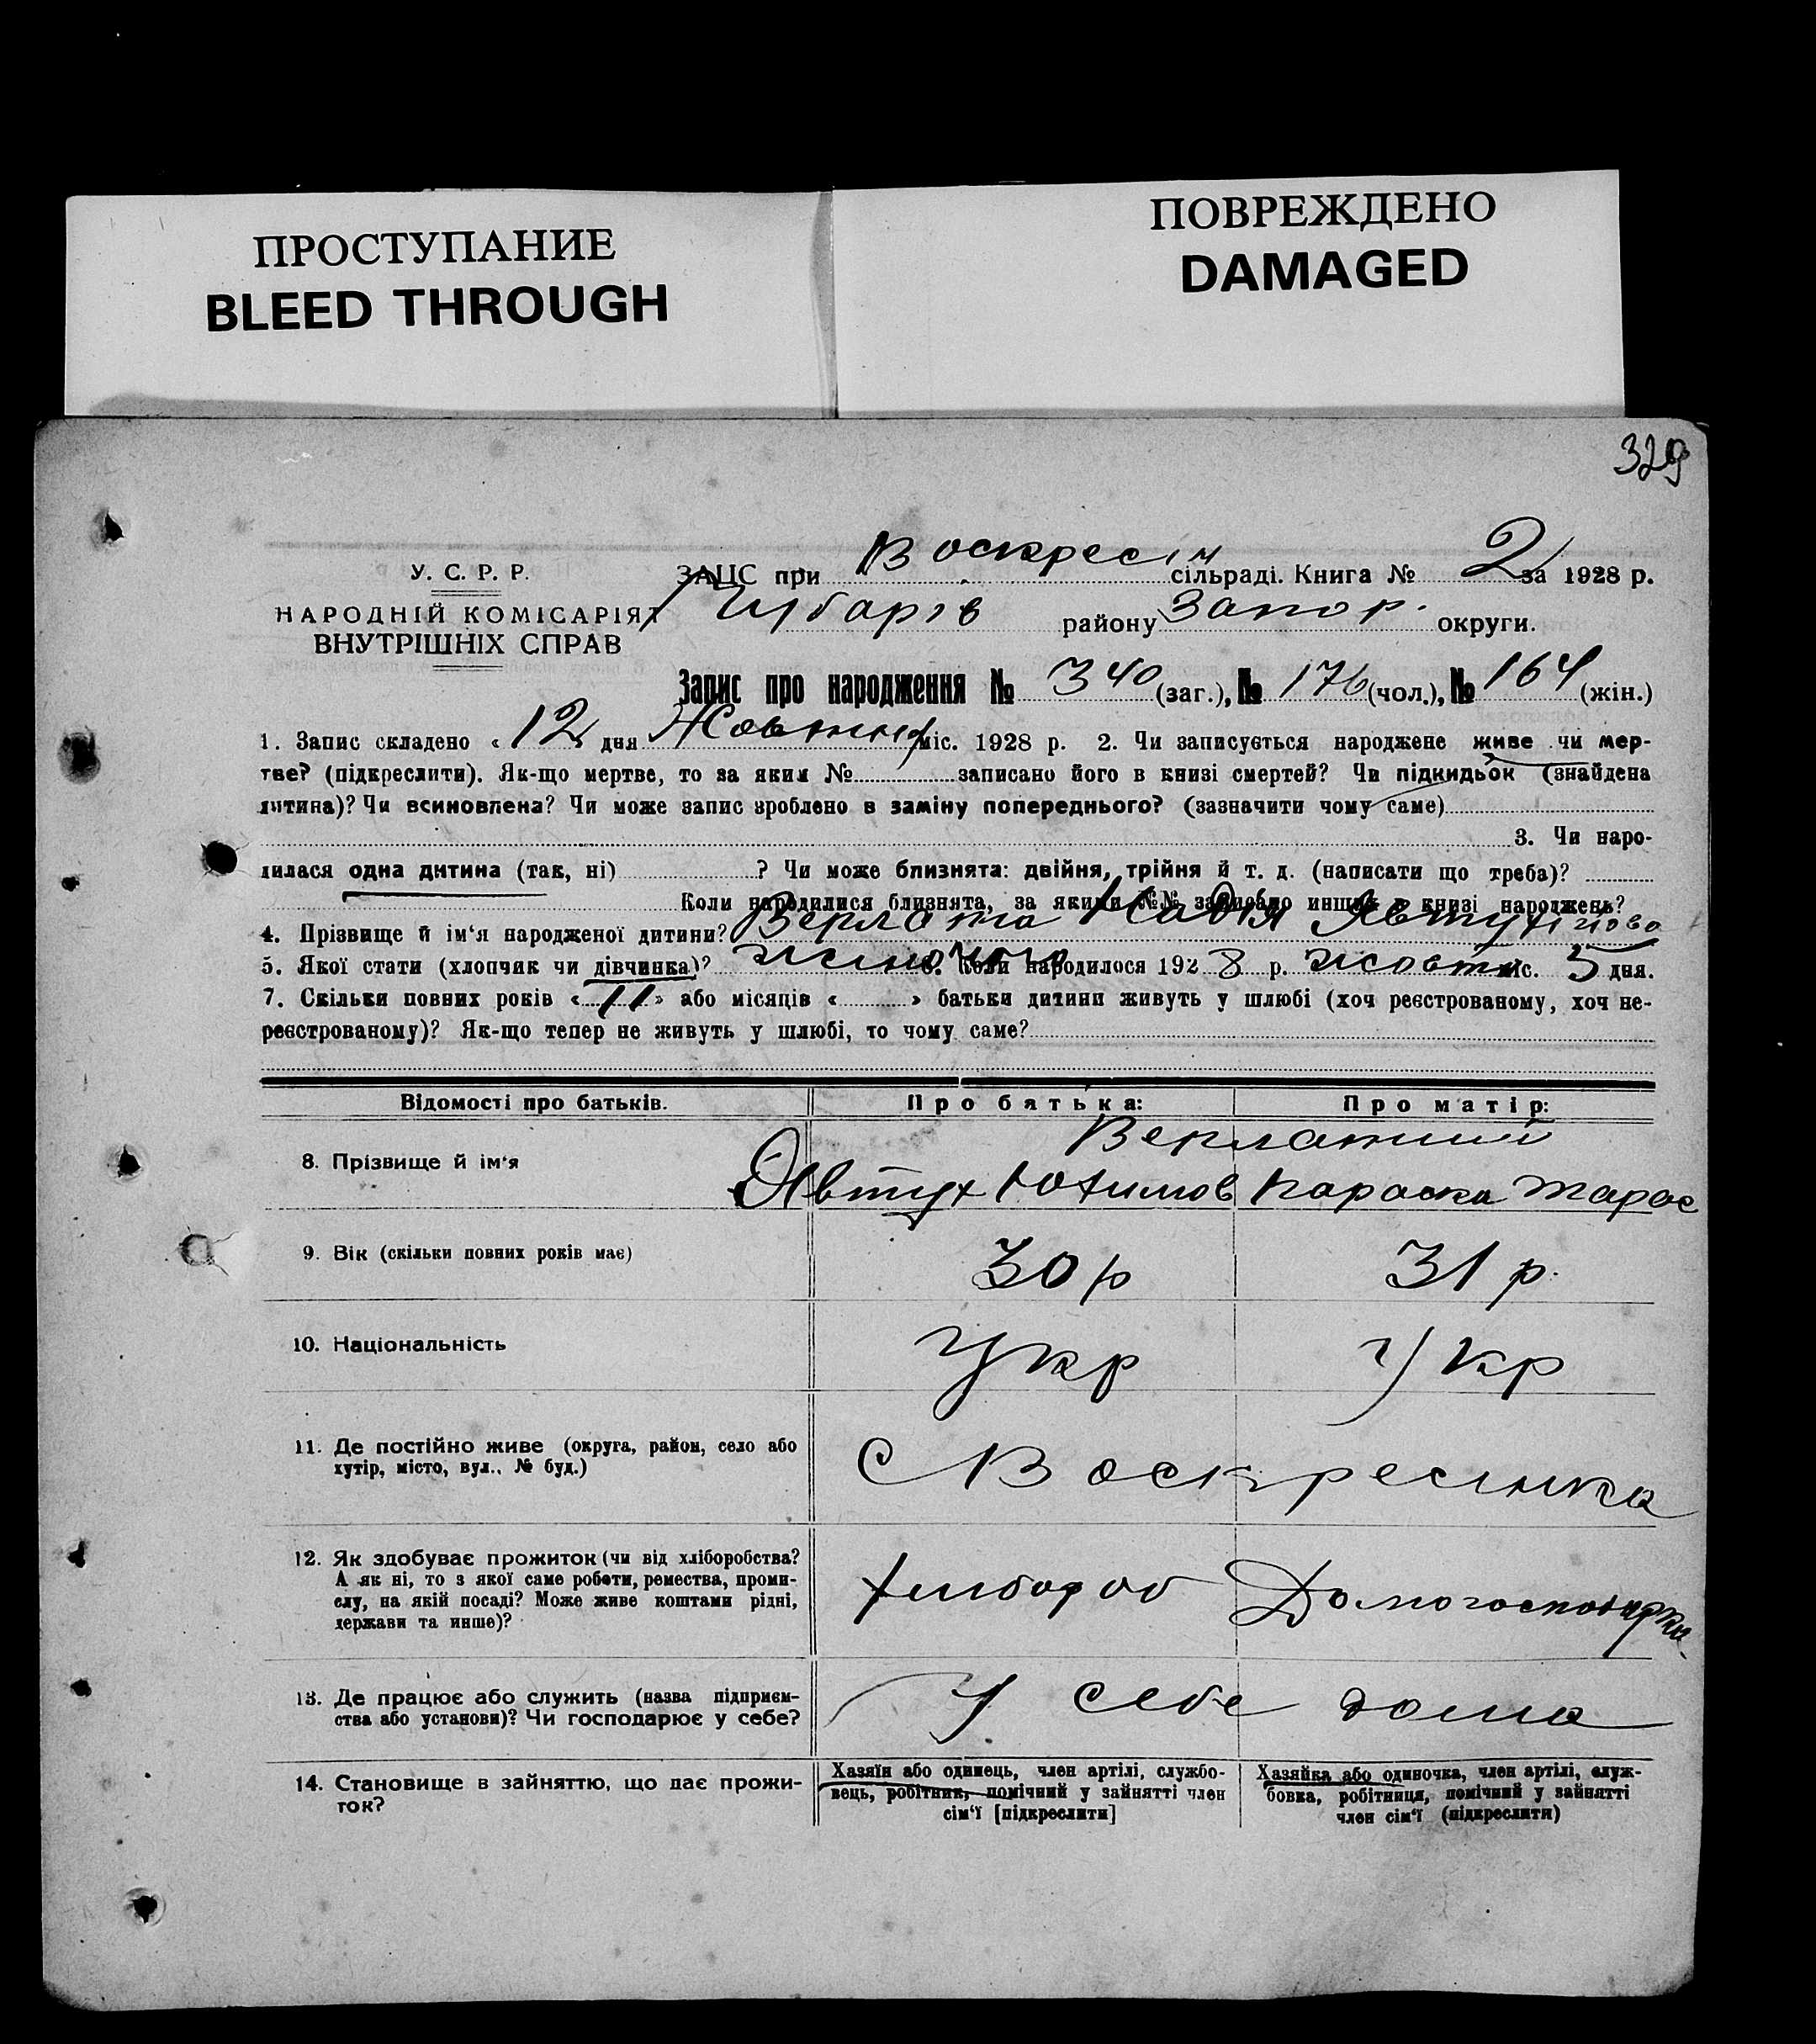 ПРОСТУПАНИЕ
BLEED THROUGH
ПОВРЕЖДЕНО
DAMAGED
329
У. С. Р. Р.
НАРОДНІЙ КОМІСАРІЯТ
ВНУТРІШНІХ СПРАВ
ЗАЦС при Воскресін сільраді. Книга № 2 за 1928 р.
Чубарів району Запор. округи.
Запис про народження № 340 (заг.), № 176 (чол.), № 164 (жін.)
1. Запис складено « 12 дня Жовтня міс. 1928 р. 2. Чи записується народжене живе чи мер-
тве? (підкреслити). Як-що мертве, то за яким № записано його в книзі смертей? Чи підкидьок (знайдена
дитина)? Чи всиновлена? Чи може запис зроблено в заміну попереднього? (зазначити чому саме)
3. Чи наро-
дилася одна дитина (так, ні) ? Чи може близнята: двійня, трійня й т. д. (написати що треба)?
Коли народилися близнята, за якими №№ записано инших в книзі народжень?
4. Прізвище й ім‘я народженої дитини? Верлата Надія Явтухіова
5. Якої стати (хлопчик чи дівчинка)? жіночого 6. Коли народилося 1928 р. жовтн міс. 5 дня.
7. Скільки повних років « 11 » або місяців « » батьки дитини живуть у шлюбі (хоч реєстрованому, хоч не-
реєстрованому)? Як-що тепер не живуть у шлюбі, то чому саме?
Відомості про батьків. Про батька: Про матір:
Верлатий
8. Прізвище й ім‘я Явтух Юхимов Параска Тарас
9. Вік (скільки повних років має) 30 р 31 р.
10. Національність Укр Укр
11. Де постійно живе (округа, район, село або
хутір, місто, вул., № буд.) С Воскресінка
12. Як здобуває прожиток (чи від хліборобства?
А як ні, то з якої саме роботи, ремества, проми-
слу, на якій посаді? Може живе коштами рідні,
держави та инше)? Хлібороб Домогосподарка
13. Де працює або служить (назва підприєм-
ства або установи)? Чи господарює у себе? У себе дома
14. Становище в зайняттю, що дає прожи-
ток?
Хазяїн або одинець, член артілі, службо-
вець, робітник, помічний у зайнятті член
сім‘ї [підкреслити]
Хазяйка або одиночка, член артілі, служ-
бовка, робітниця, помічний у зайнятті
член сім‘ї (підкреслити)